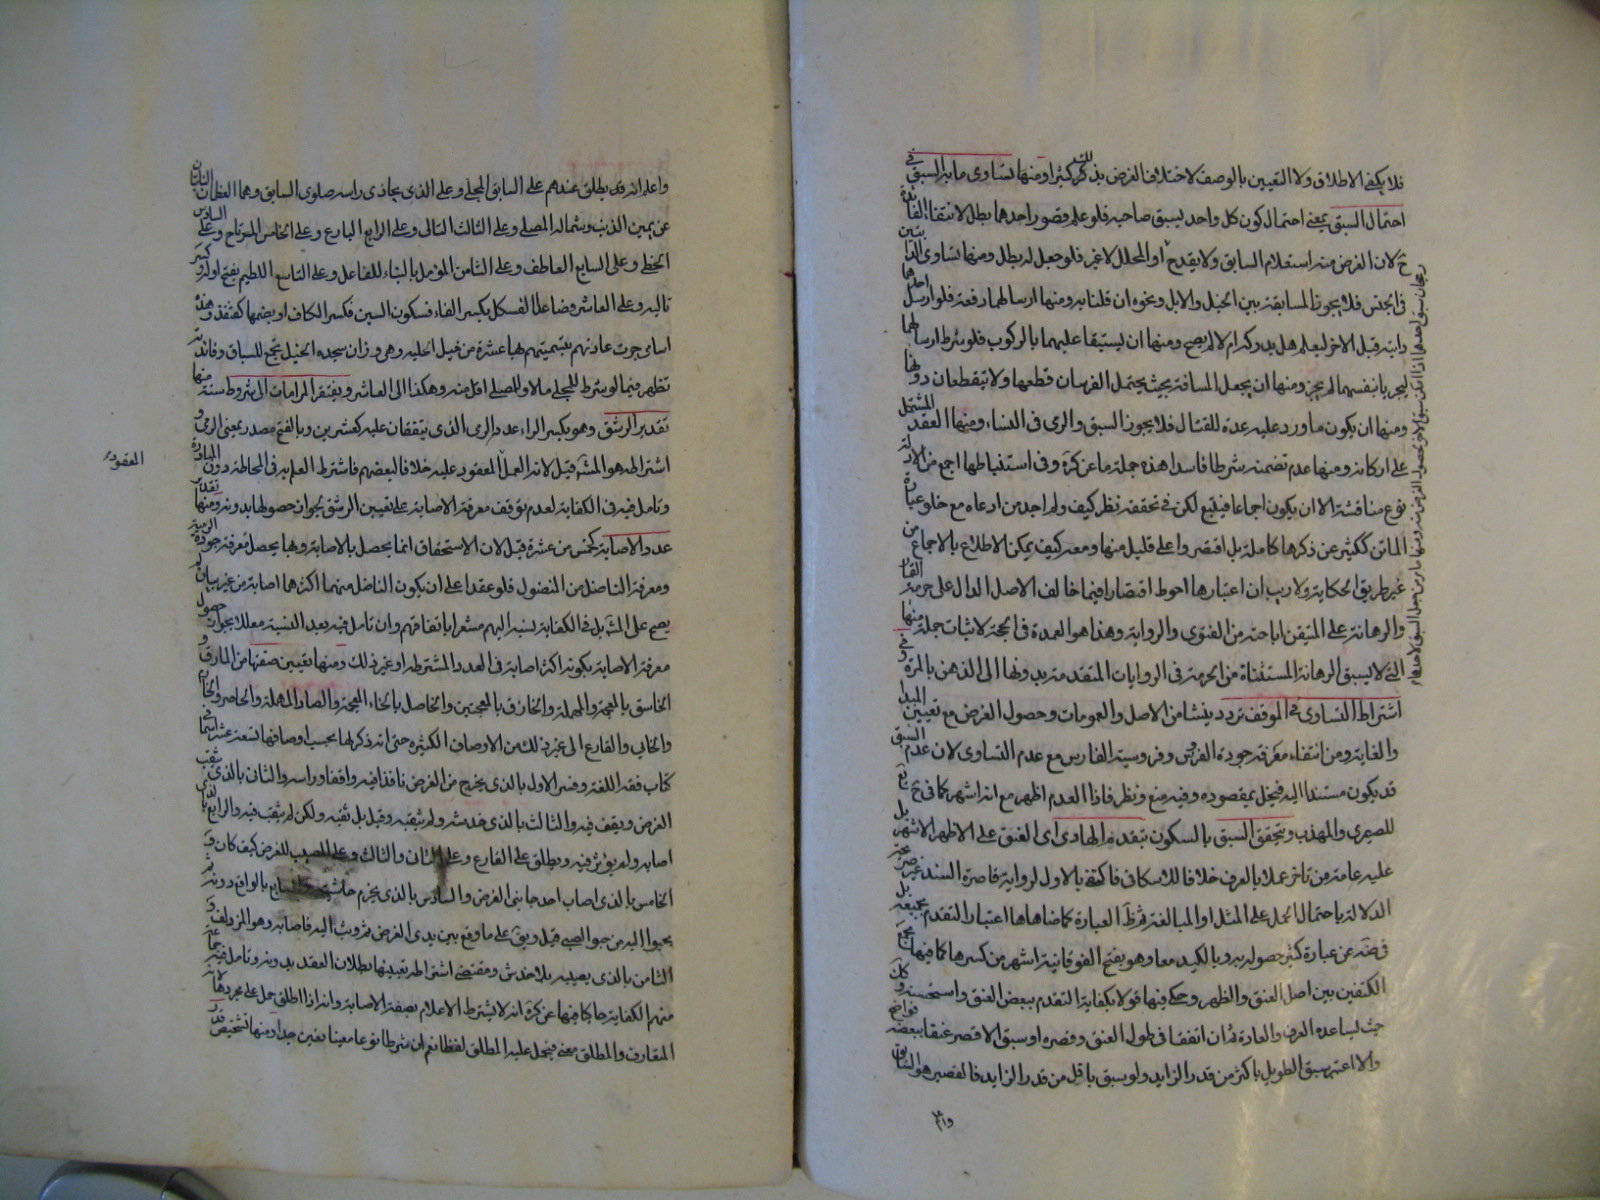 فلا يكفي الاطلاق ولا التعيين بالوصف لاختلاف الغرض بذلك كثيرا ومنها تساوي ما به السبق في
احتمال السبق بمعنى احتمال كون كل واحد يسبق صاحبه فلو علم قصور احدهما بطل لانتفاء الفائدة
ح لان الغرض منه استعلام السابق ولا يقدح او المحلل لا غير فلو جعل له بطل ومنها تساوي الدابتين
في الجنس فلا يجوز المسابقة بين الخيل والابل ونحوه ان قلنا به ومنها ارسالهما دفعة فلو ارسل احدهما
دابته قبل الاخر ليعلم هل يدركه ام لا لم يصح ومنها ان يستبقا عليهما بالركوب فلو شرط ارسالهما
ليجريا بانفسهما لم يجز ومنها ان يجعل المسافة بحيث يحتمل الفرسان قطعها ولا تنقطعان دونها
ومنها ان يكون ما ورد عليه عدة للقتال فلا يجوز السبق والرمي في النساء ومنها العقد المشتمل
على اركانه ومنها عدم تضمنه شرطا فاسدا هذه جملة ما عن كره وفي استنباطها اجمع من الادلة
نوع مناقشة الا ان يكون اجماعا فيتبع لكن في تحققه نظر كيف ولم اجد من ادعاه مع خلو عبارة
الماتن ككثير عن ذكرها كاملة بل اقتصروا على قليل منها ومعه كيف يمكن الاطلاع بالاجماع من
غير طريق الحكاية ولا ريب ان اعتبارها احوط اقتصارا فيما خالف الاصل الدال على حرمة القمار
والرهانة على المتيقن اباحته من الفتوى والرواية وهذا هو العمدة في الحجة لاثبات جملة منها
التي لا يسبق الرهانة المستثناة من الحرمة في الروايات المتقدمة بدونها الى الذهن بالمرة وفي
اشتراط التساوي في الموقف تردد ينشا من الاصل والعمومات وحصول الغرض مع تعيين المبدا
والغاية ومن انتفاء معرفة جودة الفرس وفروسية الفارس مع عدم التساوي لان عدم السبق
قد يكون مستندا اليه فيخل بمقصوده وفيه منع ونظر فاذا العدم اظهر مع انه اشهر كما في ح
للصيمري والمهذب ويتحقق السبق بالسكون بتقدم الهادي اي العنق على الاظهر الاشهر بل
عليه عامة من تاخر عملا بالعرف خلافا للاسكافي فاكتفى بالاول لرواية قاصرة السند غير
الدلالة باحتمال الحمل على المثل او المبالغة ثم ظ العبارة كما ضاهاها اعتبار التقدم بجميعه بل
في ضه عن عبارة كثير حصوله به وبالكتد معا وهو بفتح الفوقانية اشهر من كسرها مجمع
الكتفين بين اصل العنق والظهر وحكي فيها قولا بكفاية التقدم ببعض العنق واستحسنه
حيث يساعده العرف والعادة ثم ان اتفقا في طول العنق وقصره او سبق الاقصر عنقا ببعضه فواضح
والا اعتبر سبق الطويل باكثر من قدر الزايد ولو سبق باقل من قدر الزايد فالقصير هو السابق
واعلم
واعلم انه قد يطلق عندهم على السابق المجلي وعلى الذي يحاذي راسه صلوي السابق وهما العظمان الناتيان
عن يمين الذنب وشماله المصلي وعلى الثالث التالي وعلى الرابع البارع وعلى الخامس المرتاح وعلى السادس
الحظي وعلى السابع العاطف وعلى الثامن المؤمل بالبناء للفاعل وعلى التاسع اللطيم بفتح اوله وكسر
تاليه وعلى العاشر وضاعا الفسكل بكسر الفاء فسكون السين فكسر الكاف او بضمها كقنفذ وهذه
اسامي جرت عادتهم بتسميتهم لها عشرة من خيل الحلبة وهي وزان سجدة الخيل تجمع للسباق وفائدته
تظهر فيما لو شرط للمجلي مالا وللمصلي اقل منه وهكذا الى العاشر ويفتقر المرامات الى شروط ستة منها
تقدير الرشق وهو بكسر الراء عدد الرمي الذي يتفقان عليه كعشرين وبالفتح مصدر بمعنى الرمي و
اشتراطه هو المش قيل لانه العمل المعقود عليه خلافا لبعضهم فاشترط العلم به في المحاطة دون المبادرة
وتامل فيه في الكفاية لعدم توقف معرفة الاصابة على تعيين الرشق لجواز حصولها بدونه ومنها تقدير
عدد الاصابة كخمس من عشرة قيل لان الاستحقاق انما يحصل بالاصابة وبها يحصل معرفة جودة الرمي
ومعرفة الناضل من المنضول فلو عقدا على ان يكون الناضل منهما اكثرهما اصابة من غير بيان
يصح على المش بل في الكفاية نسبه اليهم مشعرا باتفاقهم وان تامل فيه بعد النسبة معللا بجواز حصول
معرفة الاصابة بكونه اكثر اصابة في العدد المشترط او غير ذلك ومنها تعيين صفتها من المارق و
الخاسق بالمعجمة والمهملة والخازق بالمعجمتين والخاصل بالخاء المعجمة والصاد المهملة والخاصر والخارم
والحابي والقارع الى غير ذلك من الاوصاف الكثيرة حتى انه ذكر لها بحسب اوصافها تسعة عشر اسما في
كتاب فقه اللغة وفسر الاول بالذي يخرج من الغرض نافذا فيه واقفا وراءه والثاني بالذي يثقب
الغرض ويقف فيه والثالث بالذي خدشه ولم يثقبه وقيل بل ثقبه ولكن لم يثبت فيه والرابع بالذي
اصابه ولم يؤثر فيه ويطلق على القارع وعلى الثاني والثالث وعلى المصيب للغرض كيف كان و
الخامس بالذي اصاب احد جانبي الغرض والسادس بالذي يخرم حاشيته والسابع بالواقع دونه ثم
يحبوا اليه من حبو الصبي قيل ويق على ما وقع بين يدي الغرض ثم وثب اليه فاصابه وهو المزدلف و
الثامن بالذي يصيبه بلا خدش ومقتضى اشتراطه تعيينها بطلان العقد بدونه وتامل فيه جماعة
منهم الكفاية حاكيا فيها عن كره انه لا يشترط الاعلام بصفة الاصابة وانه اذا اطلق حمل على مجردها لانه
المتعارف والمطلق معنى فيحمل عليه المطلق لفظا نعم ان شرطا نوعا معينا تعين جدا ومنها تشخيص قدر
العقود